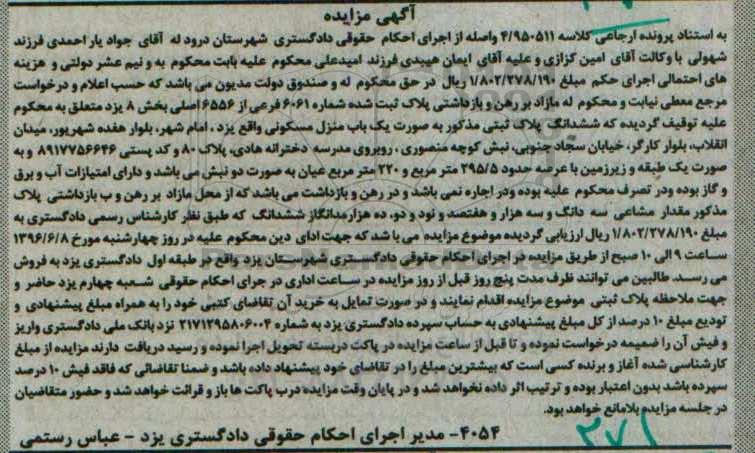 آگهی مزایده
به استناد پرونده ارجاعی کلاسه ۴/۹۵۰۵۱۱ واصله از اجرای احکام حقوقی دادگستری شهرستان درود له آقای جواد یار احمدی فرزند
شهولی با وکالت آقای امین کزازی و علیه آقای ایمان هیبدی فرزند امیدعلی محکوم علیه بابت محکوم به و نیم عشر دولتی و هزینه
های احتمالی اجرای حکم مبلغ ۱/۸۰۲/۲۷۸/۱۹۰ ریال در حق محکوم له و صندوق دولت مدیون می باشد که حسب اعلام و درخواست
مرجع معطی نیابت و محکوم له مازاد بر رهن و بازداشتی پلاک ثبت شده شماره ۶۰۶۱ فرعی از ۶۵۵۶ اصلی بخش ۸ یزد متعلق به محکوم
علیه توقیف گردیده که ششدانگ پلاک ثبتی مذکور به صورت یک باب منزل مسکونی واقع یزد ، امام شهر، بلوار هفده شهریور، میدان
انقلاب، بلوار کارگر، خیابان سجاد جنوبی، نبش کوچه منصوری ، روبروی مدرسه دخترانه هادی، پلاک ۸۰ و کد پستی ۸۹۱۷۷۵۶۶۴۶ و به
صورت یک طبقه و زیرزمین با عرصه حدود ۲۹۵/۵ متر مربع و ۲۲۰ متر مربع عیان به صورت دو نبش می باشد و دارای امتیازات آب و برق
و گاز بوده ودر تصرف محکوم علیه بوده ودر اجاره نمی باشد و در رهن و بازداشت می باشد که از محل مازاد بر رهن و ب بازداشتی پلاک
مذکور مقدار مشاعی سه دانگ و سه هزار و هفتصد و نود و دو، ده هزارمدانگاز ششدانگ که طبق نظر کارشناس رسمی دادگستری به
مبلغ ۱/۸۰۲/۲۷۸/۱۹۰ ریال ارزیابی گردیده موضوع مزایده می با شد که جهت ادای دین محکوم علیه در روز چهارشنبه مورخ ۱۳۹۶/۶/۸
ساعت ۹ الی ۱۰ صبح از طریق مزایده در اجرای احکام حقوقی دادگستری شهرستان یزد واقع در طبقه اول دادگستری یزد به فروش
می رسد. طالبین می توانند ظرف مدت پنج روز قبل از روز مزایده در ساعت اداری در جرای احکام حقوقی شعبه چهارم یزد حاضر و
جهت ملاحظه پلاک ثبتی موضوع مزایده اقدام نمایند و در صورت تمایل به خرید آن تقاضای کتبی خود را به همراه مبلغ پیشنهادی و
تودیع مبلغ ۱۰ درصد از کل مبلغ پیشنهادی به حساب سپرده دادگستری یزد به شماره ۲۱۷۱۲۹۵۸۰۶۰۰۴ نزد بانک ملی دادگستری واریز
و فیش آن را ضمیمه درخواست نموده و تا قبل از ساعت مزایده در پاکت دربسته تحویل اجرا نموده و رسید دریافت دارند مزایده از مبلغ
کارشناسی شده آغاز و برنده کسی است که بیشترین مبلغ را در تقاضای خود پیشنهاد داده باشد و ضمنا تقاضائی که فاقد فیش ۱۰ درصد
سپرده باشد بدون اعتبار بوده و ترتیب اثر داده نخواهد شد و در پایان وقت مزایده درب پاکت ها باز و قرائت خواهد شد و حضور متقاضیان
در جلسه مزایده بلامانع خواهد بود.
۴۰۵۴- مدیر اجرای احکام حقوقی دادگستری یزد - عباس رستمی
۳۷۱